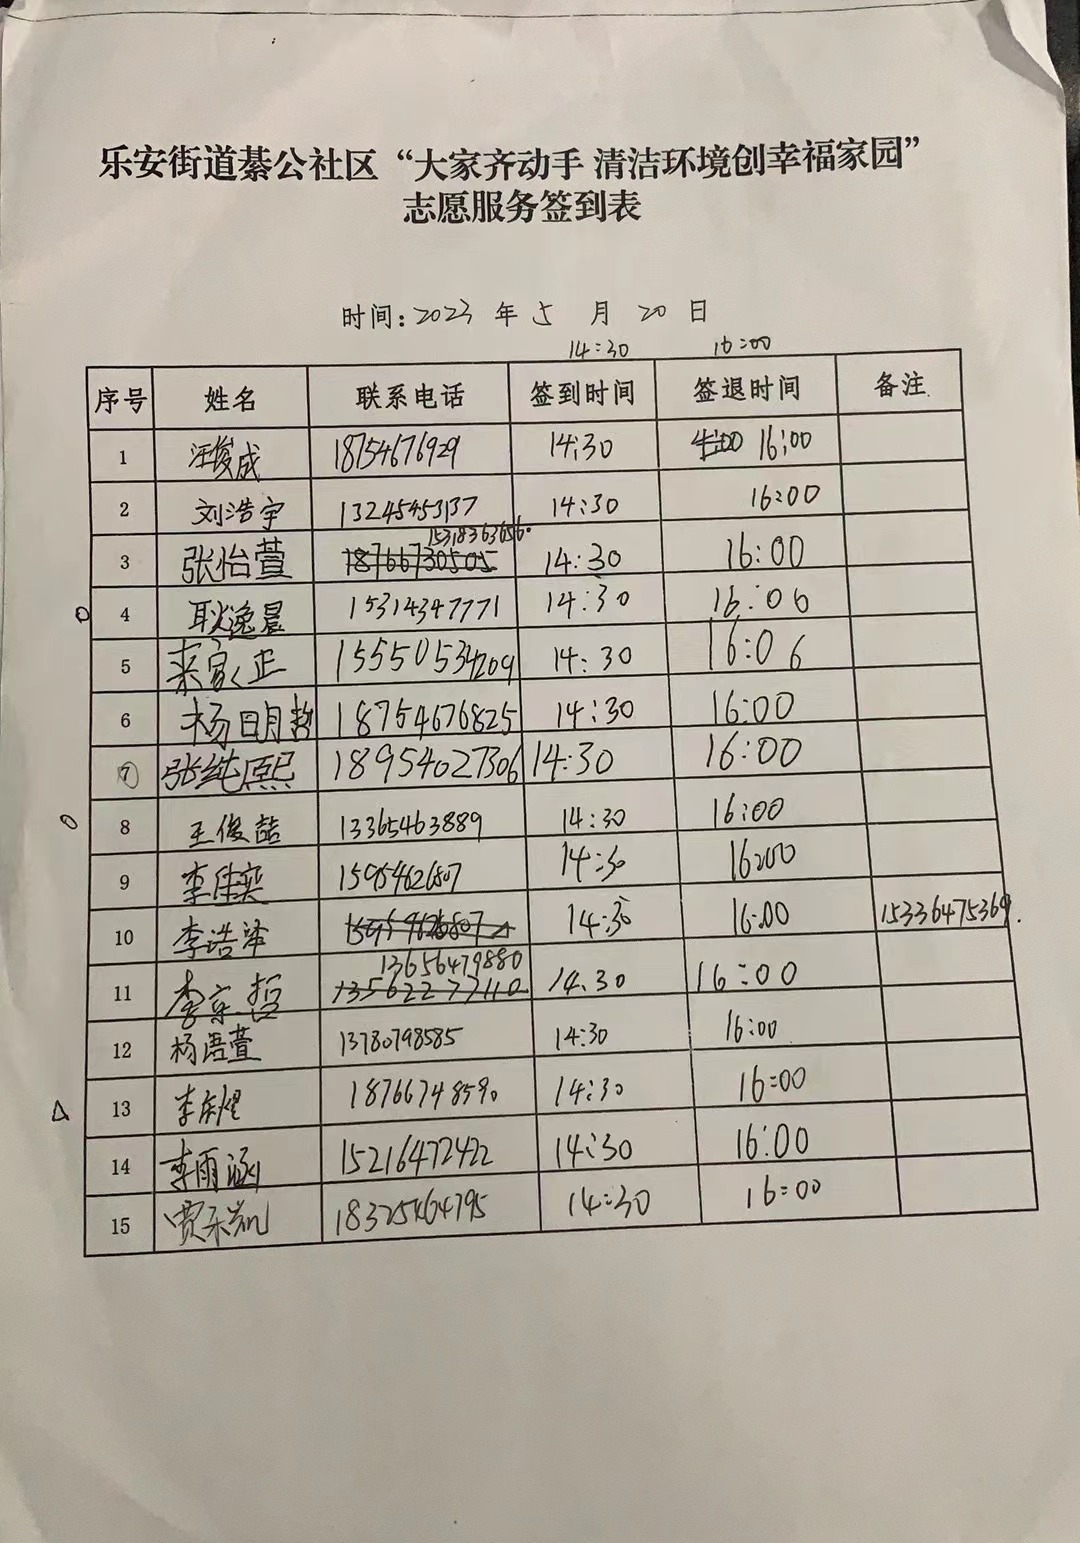 乐安街道綦公社区“大家齐动手 清洁环境创幸福家园”
志愿服务签到表
时间：2023 年 5 月 20 日
14:30 16:00
序号 姓名 联系电话 签到时间 签退时间 备注
1 汪俊成 18754676929 14:30 16:00
2 刘浩宇 13245453137 14:30 16:00
15318363656
3 张怡萱 18766730505 14:30 16:00
4 耿逸晨 15314347771 14:30 16:06
5 家正 15550534209 14:30 16:06
6 杨明哲 18754676825 14:30 16:00
7 张纯熙 18954027306 14:30 16:00
8 王俊喆 13365463889 14:30 16:00
9 李佳奕 15954626807 14:30 16:00
10 李浩泽 15954626807 14:30 16:00 15336475369.
13656479880
11 李宗哲 13562277110 14:30 16:00
12 杨语萱 13780798585 14:30 16:00
13 李东煜 18766748590 14:30 16:00
14 李雨涵 15216472422 14:30 16:00
15 贾承凯 18325464795 14:30 16:00